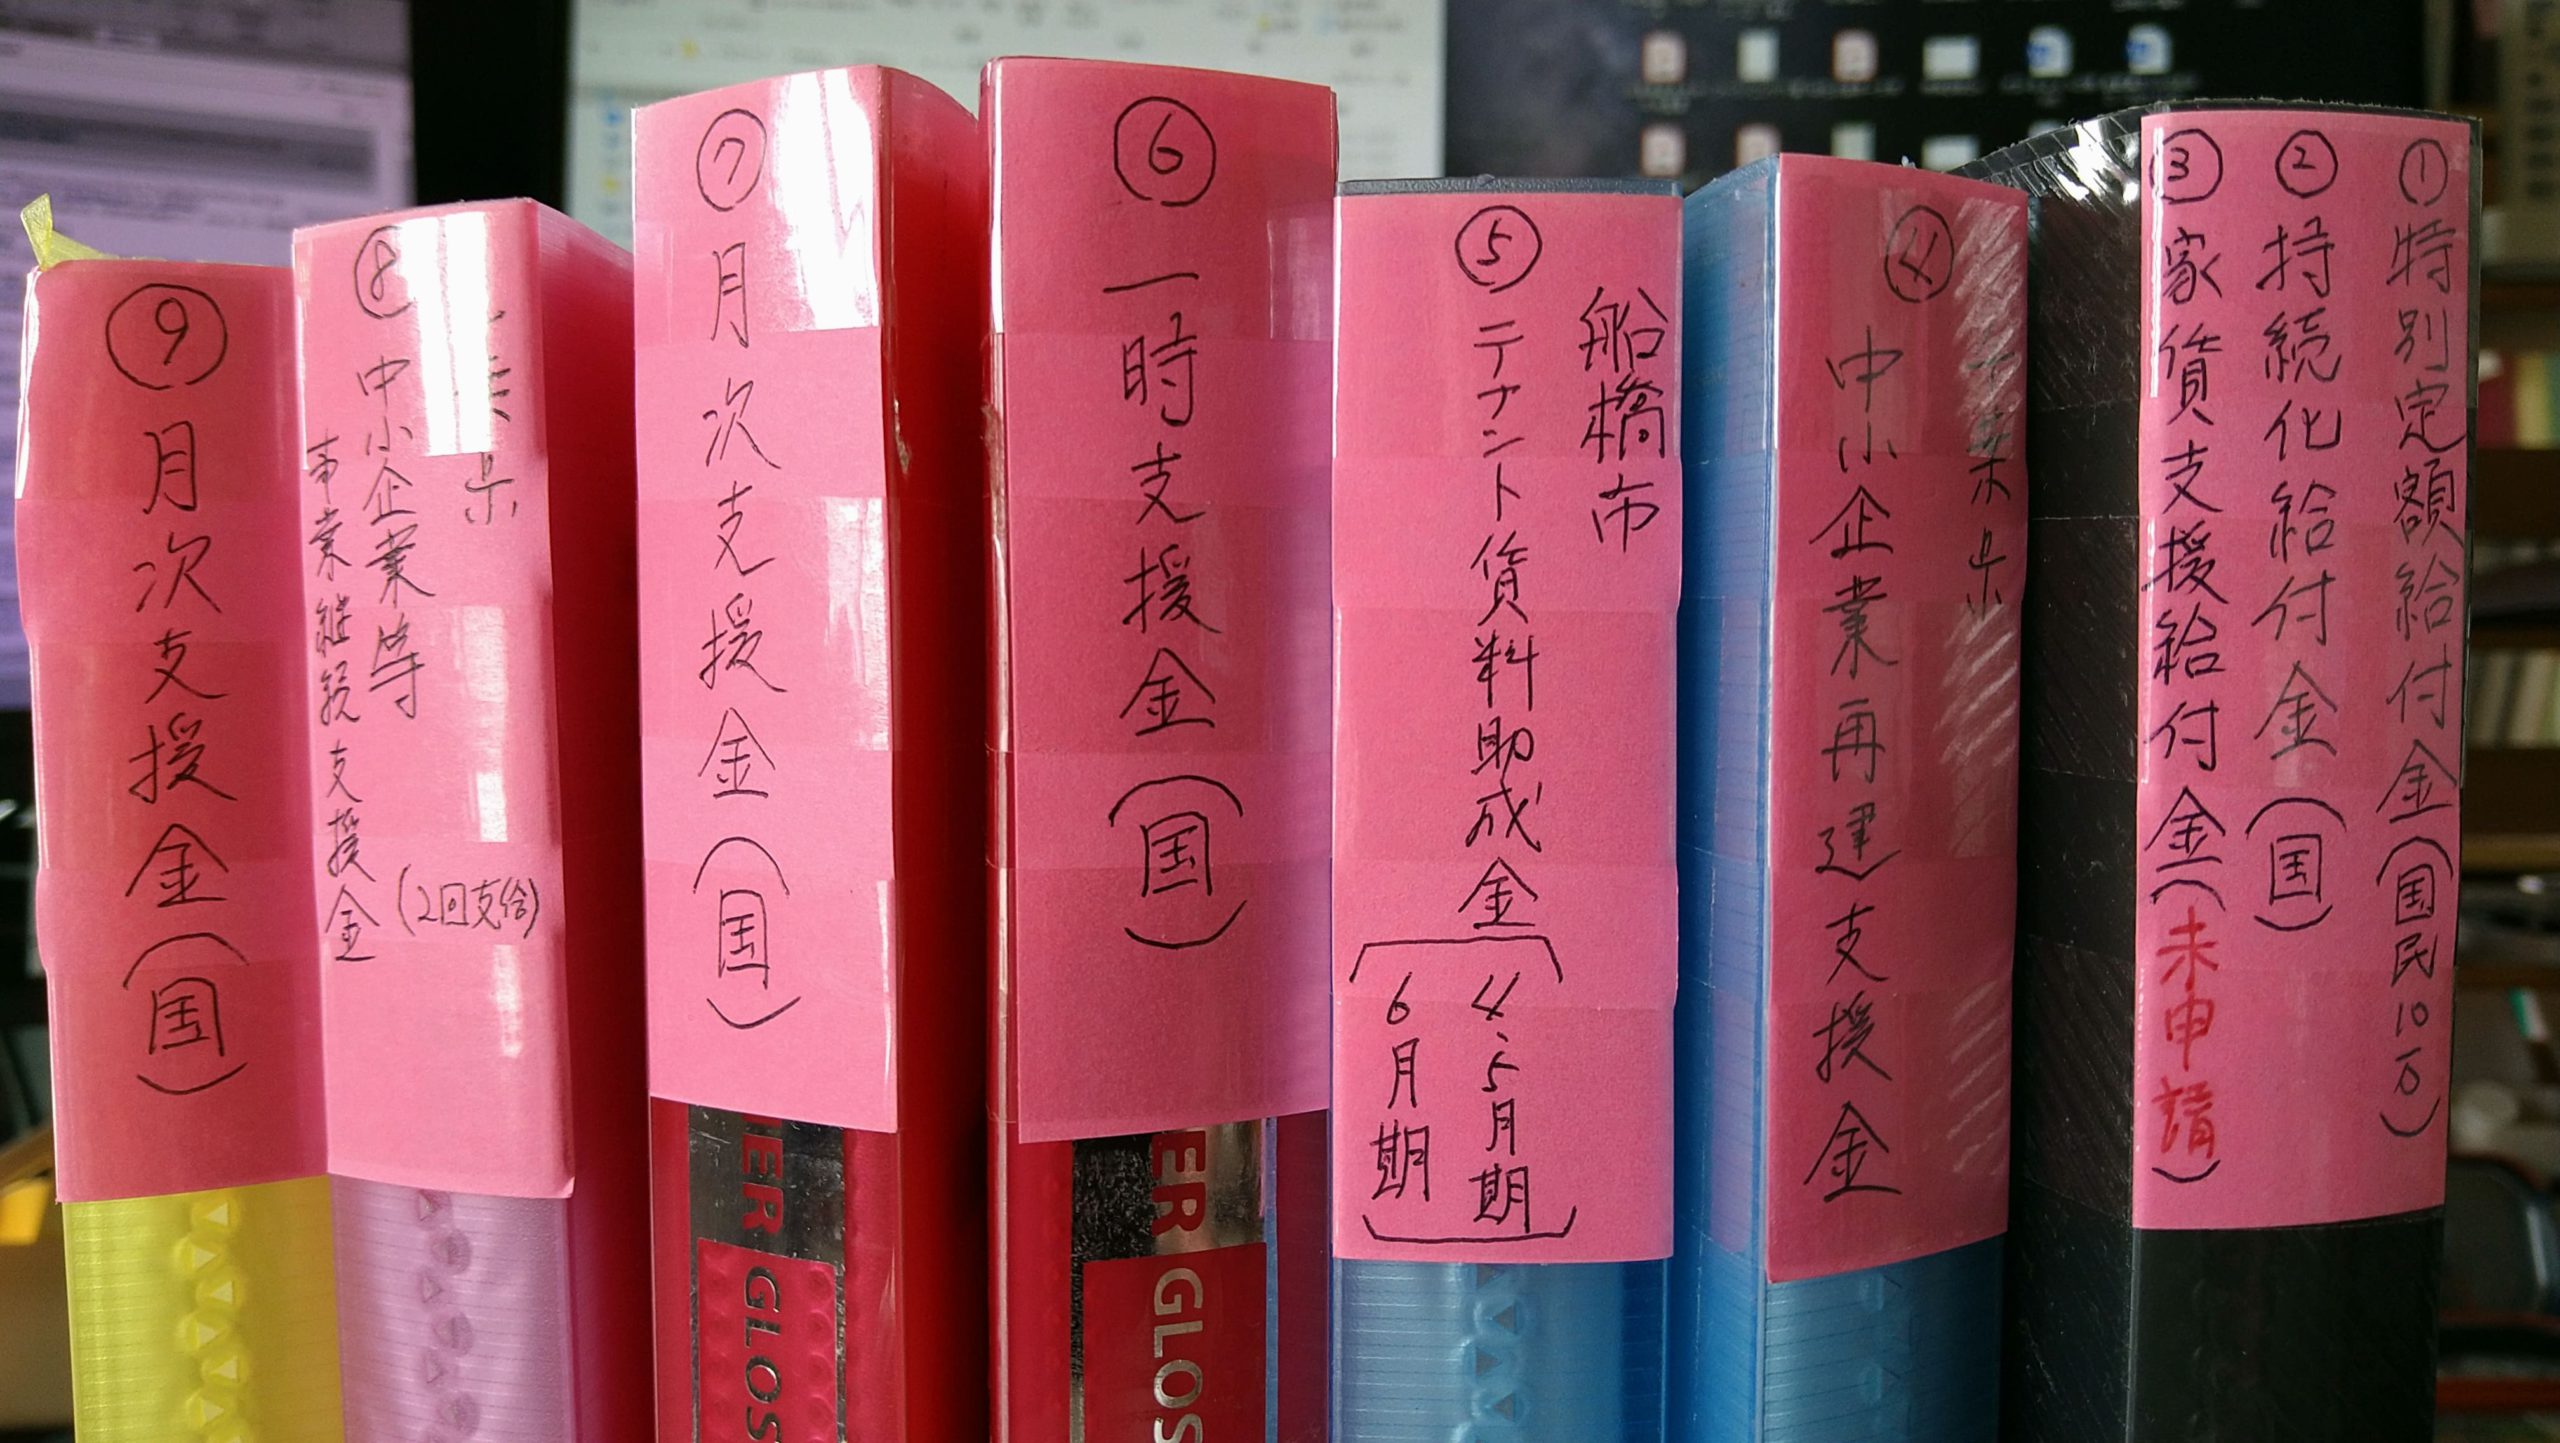 ①特別定額給付金(国民10万)
②持続化給付金(国)
③家賃支援給付金(未申請)
千葉県
④中小企業再建支援金
船橋市
⑤テナント賃料助成金
4、5月期
6月期
⑥一時支援金(国)
ER GLOS
⑦月次支援金(国)
IER GLOS
千葉県
⑧中小企業等
事業継続支援金
(2回支給)
⑨月次支援金(国)